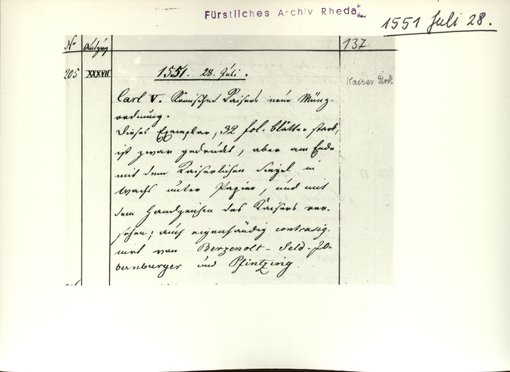 Fürstliches Archiv Rheda
1551 Juli 28.
No
137
205 XXXVII 1551. 28. Juli.
Kaiser Urk
Carl V. Römischen Kaisers neue Münz-
ordnung.
Dieses Exemplar, 32 fol. blätter stark,
ist zwar gedruckt, aber am Ende
mit dem Kaiserlichen Siegel in
Wachs unter Papier, und mit
dem Handzeichen des Kaisers ver-
sehen; auch eigenhändig contrasig-
nirt von
und Pfintzing.